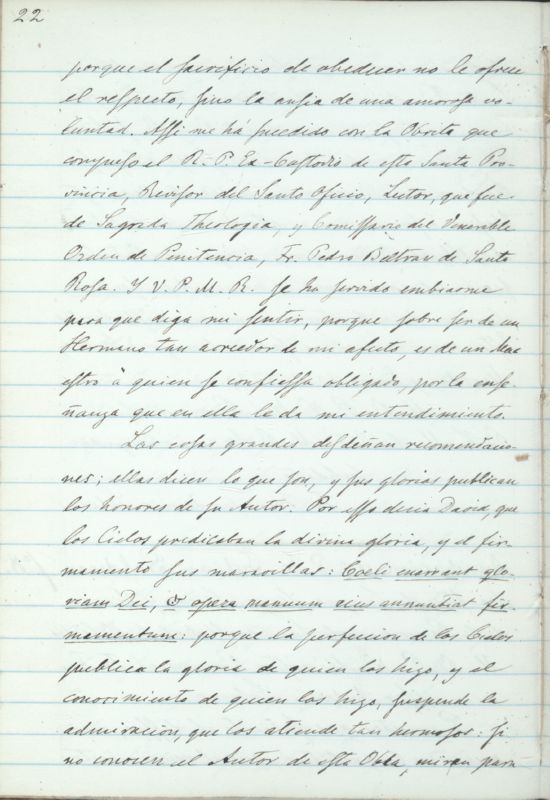 22
porque el sacrificio de obedecer no le ofrece
el respecto, sino la ansia de una amorosa vo-
luntad. Assi me há sucedido con la Obrita que
compuso el R. P. Ex-Custodio de esta Santa Pro-
vincia, Revisor del Santo Oficio, Lector, que fue
de Sagrada Theologia, y Comissario del Venerable
Orden de Penitencia, Fr. Pedro Beltran de Santa
Rosa. Y V. P. M. R. se ha servido embiarme
para que diga mi sentir, porque sobre ser de un
Hermano tan acreedor de mi afecto, es de un Mae
estro â quien se confiessa obligado, por la ense-
ñanza que en ella le da mi entendimiento.
Las cosas grandes desdeñan recomendacio-
nes; ellas dicen lo que son, y sus glorias publican
los honores de su Autor. Por esso decia David, que
los Cielos predicaban la divina gloria, y el fir-
mamento sus maravillas: Coeli enarrant glo-
riam Dei, & opera manuum eius annuntiat fir-
mamentum: porque la perfeccion de los Cielos
publica la gloria de quien los hizo, y el
conocimiento de quien los hizo, suspende la
admiracion, que los atiende tan hermosos: si
no conocen el Autor de esta Obra, miren para